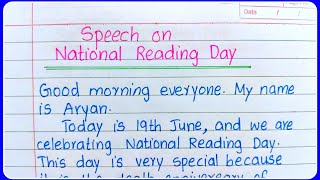 Date / /
Speech on
National Reading Day
Good morning everyone. My name
is Aryan.
Today is 19th June, and we are
celebrating National Reading Day.
This day is very special because
it is the death anniversary of